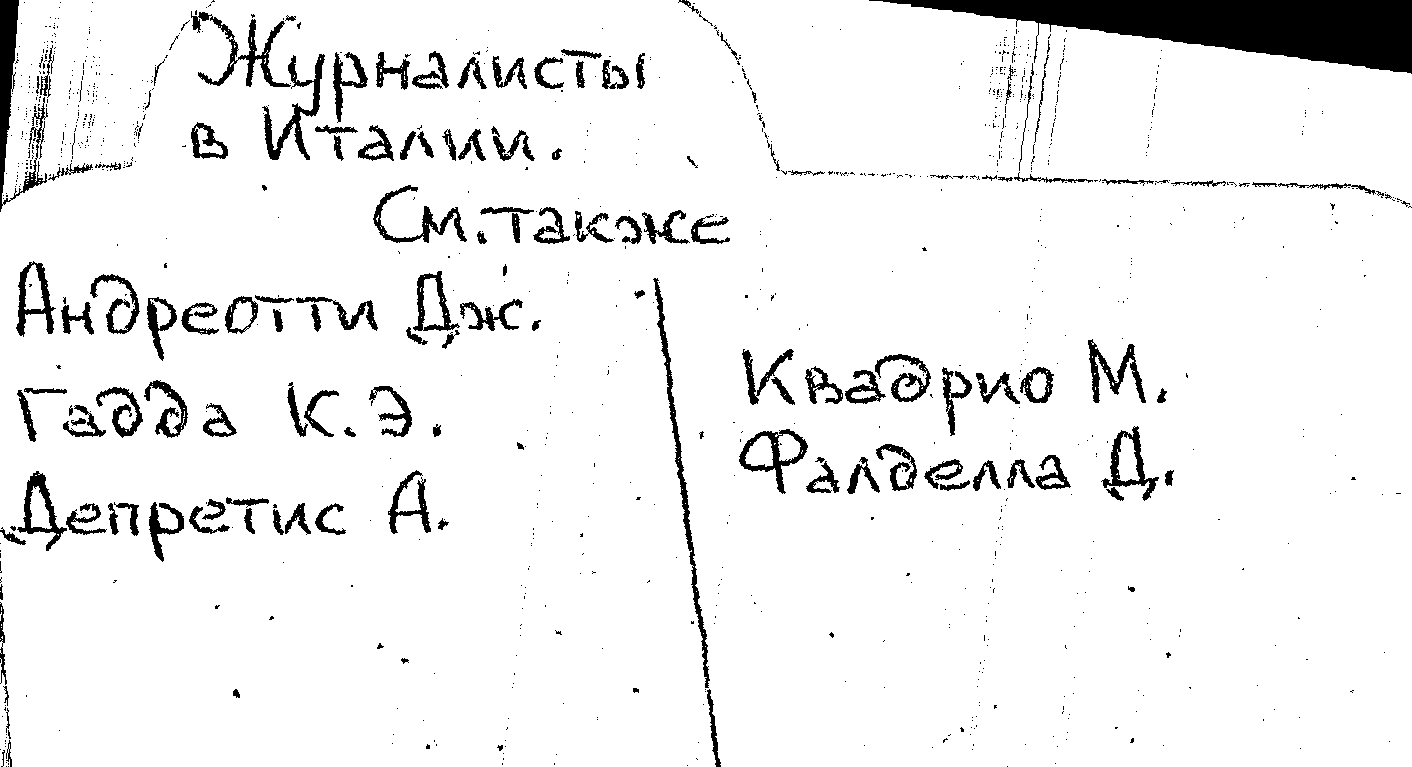 Журналисты
в Италии.
См. также
Андреотти Дж.
Гадда К.Э.
Депретис А.
Квадрио М.
Фалделла Д.